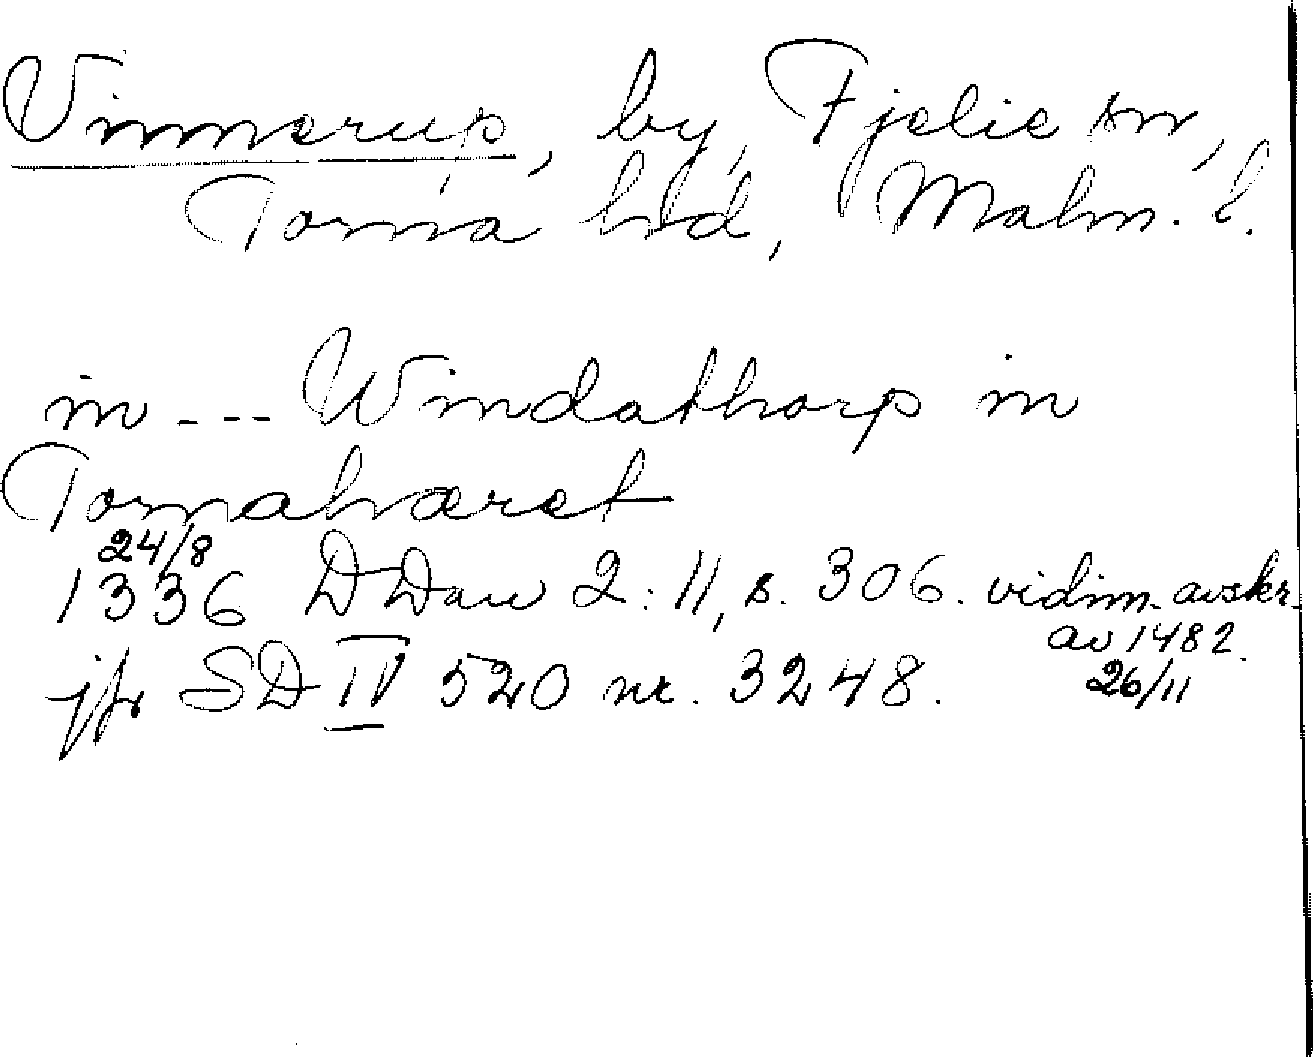 Vinnerup, by, Fjelie sn,
Torna hd, Malm. l.
in --- Windathorp in
Tornahæret
24/8
1336 DDan 2:11, s. 306. vidim. avskr.
av 1482.
jfr SD IV 520 nr. 3248. 26/11